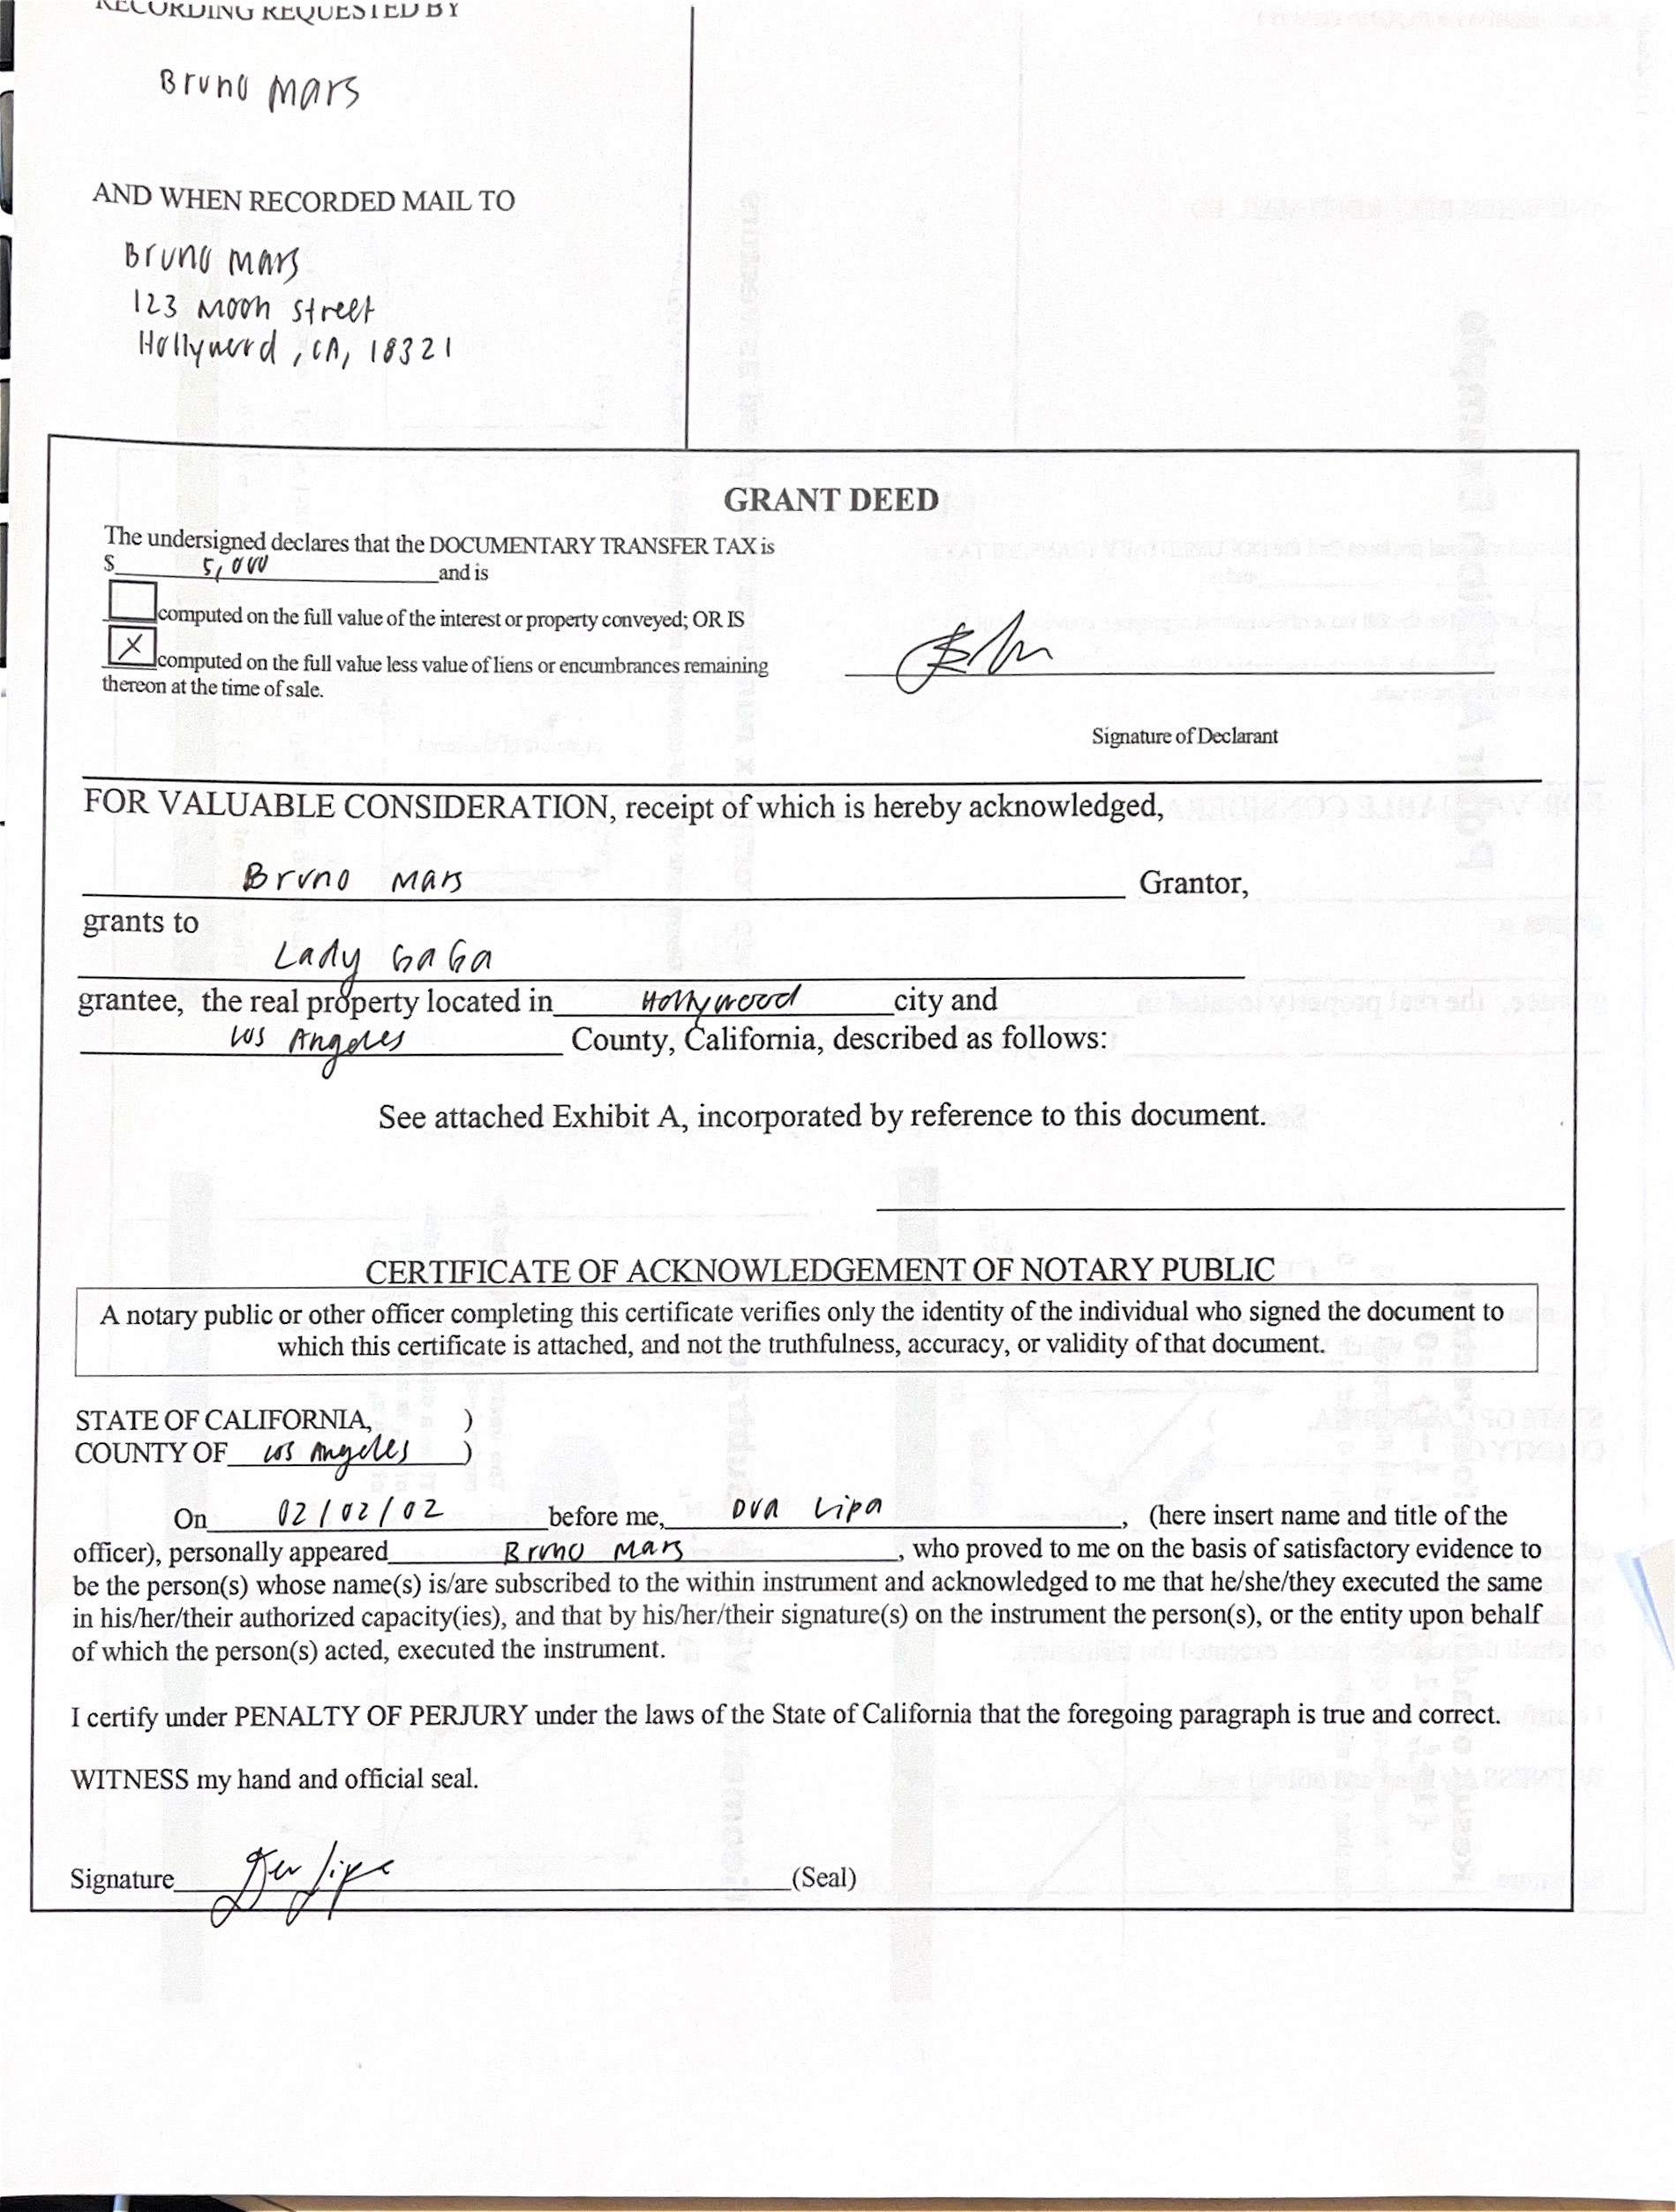 RECORDING REQUESTED BY
Bruno Mars
AND WHEN RECORDED MAIL TO
Bruno Mars
123 Moon Street
Hollywood, CA, 18321
GRANT DEED
The undersigned declares that the DOCUMENTARY TRANSFER TAX is
$ 5,000 and is
computed on the full value of the interest or property conveyed; OR IS
X computed on the full value less value of liens or encumbrances remaining
thereon at the time of sale.
Signature of Declarant
FOR VALUABLE CONSIDERATION, receipt of which is hereby acknowledged,
Bruno Mars Grantor,
grants to
Lady GaGa
grantee, the real property located in Hollywood city and
Los Angeles County, California, described as follows:
See attached Exhibit A, incorporated by reference to this document.
CERTIFICATE OF ACKNOWLEDGEMENT OF NOTARY PUBLIC
A notary public or other officer completing this certificate verifies only the identity of the individual who signed the document to
which this certificate is attached, and not the truthfulness, accuracy, or validity of that document.
STATE OF CALIFORNIA, )
COUNTY OF Los Angeles )
On 02/02/02 before me, Dua Lipa, (here insert name and title of the
officer), personally appeared Bruno Mars, who proved to me on the basis of satisfactory evidence to
be the person(s) whose name(s) is/are subscribed to the within instrument and acknowledged to me that he/she/they executed the same
in his/her/their authorized capacity(ies), and that by his/her/their signature(s) on the instrument the person(s), or the entity upon behalf
of which the person(s) acted, executed the instrument.
I certify under PENALTY OF PERJURY under the laws of the State of California that the foregoing paragraph is true and correct.
WITNESS my hand and official seal.
Signature (Seal)